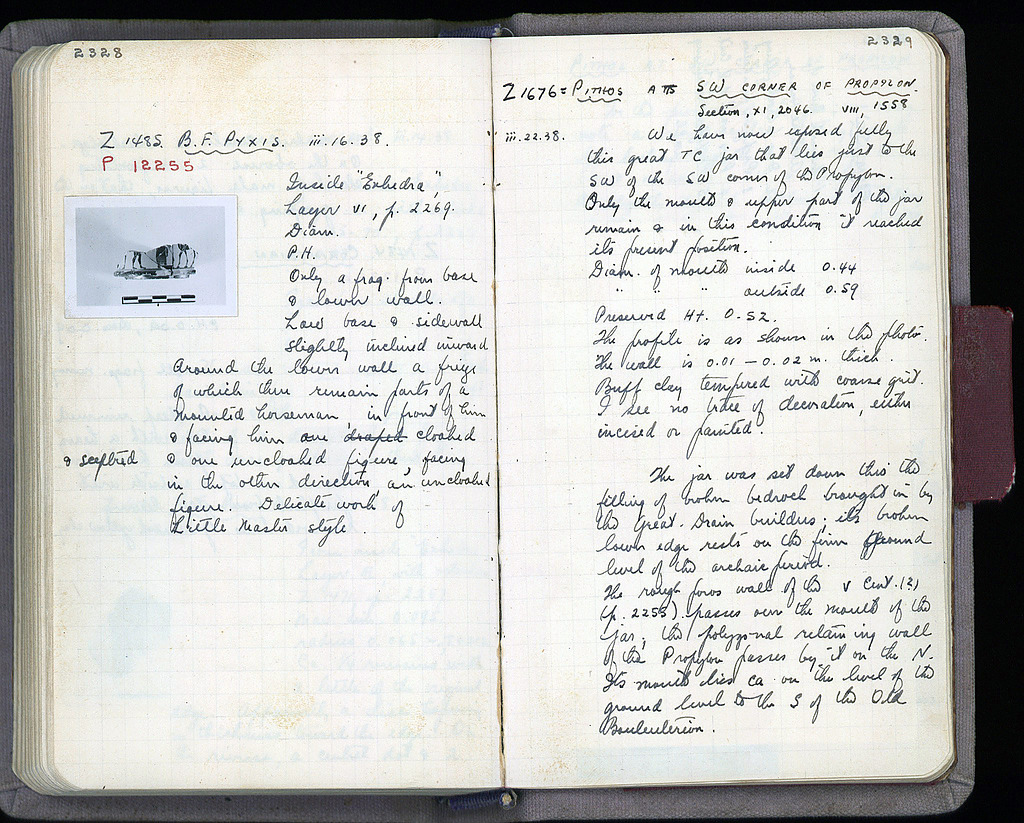 2328
Z 1485 B.F. PYXIS. iii.16.38.
P 12255
Inside "Exhedra"
Layer VI, p. 2269.
Diam.
P.H.
Only a frag. from base
& lower wall.
Low base & sidewall
slightly inclined inward
Around the lower wall a frieze
of which there remain parts of a
mounted horseman, in front of him
& facing him one draped cloaked
& sceptred & one uncloaked figure, facing
in the other direction, an uncloaked
figure. Delicate work of
Little Master style.
2329
Z 1676 = PITHOS AT SW CORNER OF PROPYLON.
Section, XI, 2046. VIII, 1558
iii.22.38. We have now exposed fully
this great TC jar that lies just to the
SW of the SW corner of the Propylon.
Only the mouth & upper part of the jar
remain & in this condition it reached
its present position.
Diam. of mouth inside 0.44
" " " outside 0.59
Preserved Ht. 0.52.
The profile is as shown in the photo.
The wall is 0.01 – 0.02 m. thick.
Buff clay tempered with coarse grit.
I see no trace of decoration, either
incised or painted.
The jar was set down this the
filling of broken bedrock brought in by
the Great Drain builders; its broken
lower edge rests on the firm ground
level of the archaic period.
The rough poros wall of the V Cent. (?)
(p. 2253) passes over the mouth of the
jar; the polygonal retaining wall
of the Propylon passes by it on the N.
Its mouth lies ca. on the level of the
ground level to the S of the Old
Bouleuterion.